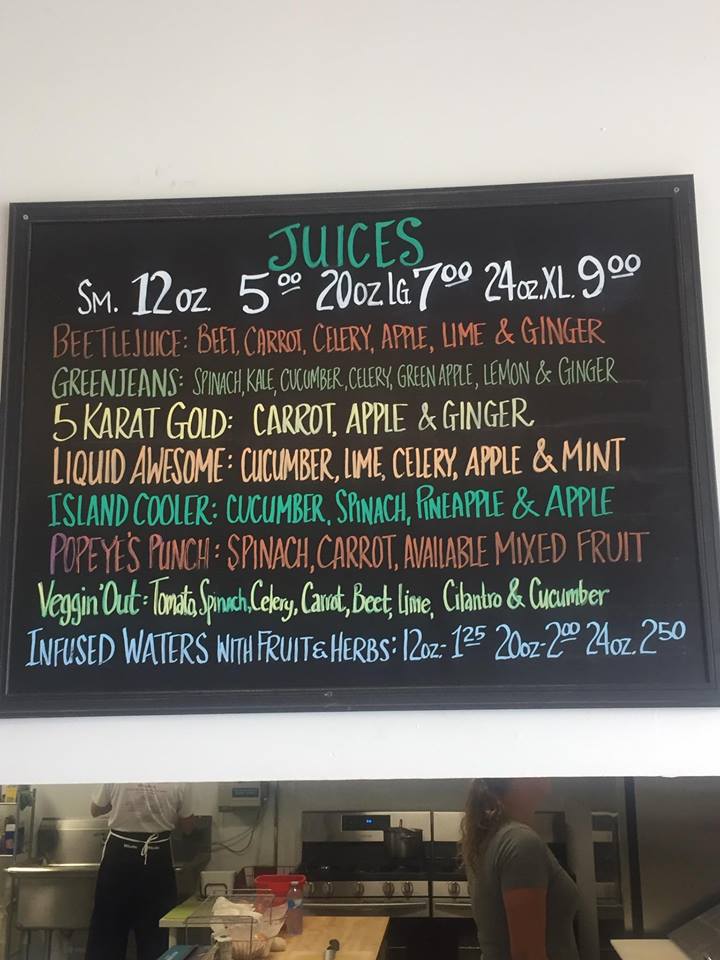 JUICES
SM. 12oz. 5.00 20oz LG 7.00 24oz. XL. 9.00
BEETLEJUICE: BEET, CARROT, CELERY, APPLE, LIME & GINGER
GREENJEANS: SPINACH, KALE, CUCUMBER, CELERY, GREEN APPLE, LEMON & GINGER
5 KARAT GOLD: CARROT, APPLE & GINGER
LIQUID AWESOME: CUCUMBER, LIME, CELERY, APPLE & MINT
ISLAND COOLER: CUCUMBER, SPINACH, PINEAPPLE & APPLE
POPEYE'S PUNCH: SPINACH, CARROT, AVAILABLE MIXED FRUIT
Veggin' Out: Tomato, Spinach, Celery, Carrot, Beet, Lime, Cilantro & Cucumber
INFUSED WATERS WITH FRUIT & HERBS: 12oz.- 1.25 20oz-2.00 24oz. 2.50